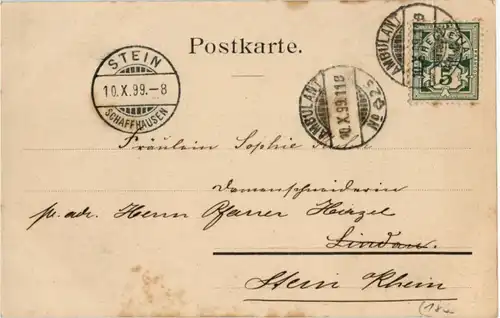 Postkarte.
STEIN
10.X.99.-8
SCHAFFHAUSEN
AMBULANT
10.X.99.11
No 25
AMBULANT
HELVETIA
5
Fräulein Sophie
Damenschneiderin
p. adr. Herrn Pfarrer Hirzel
Lindau.
Stein Rhein